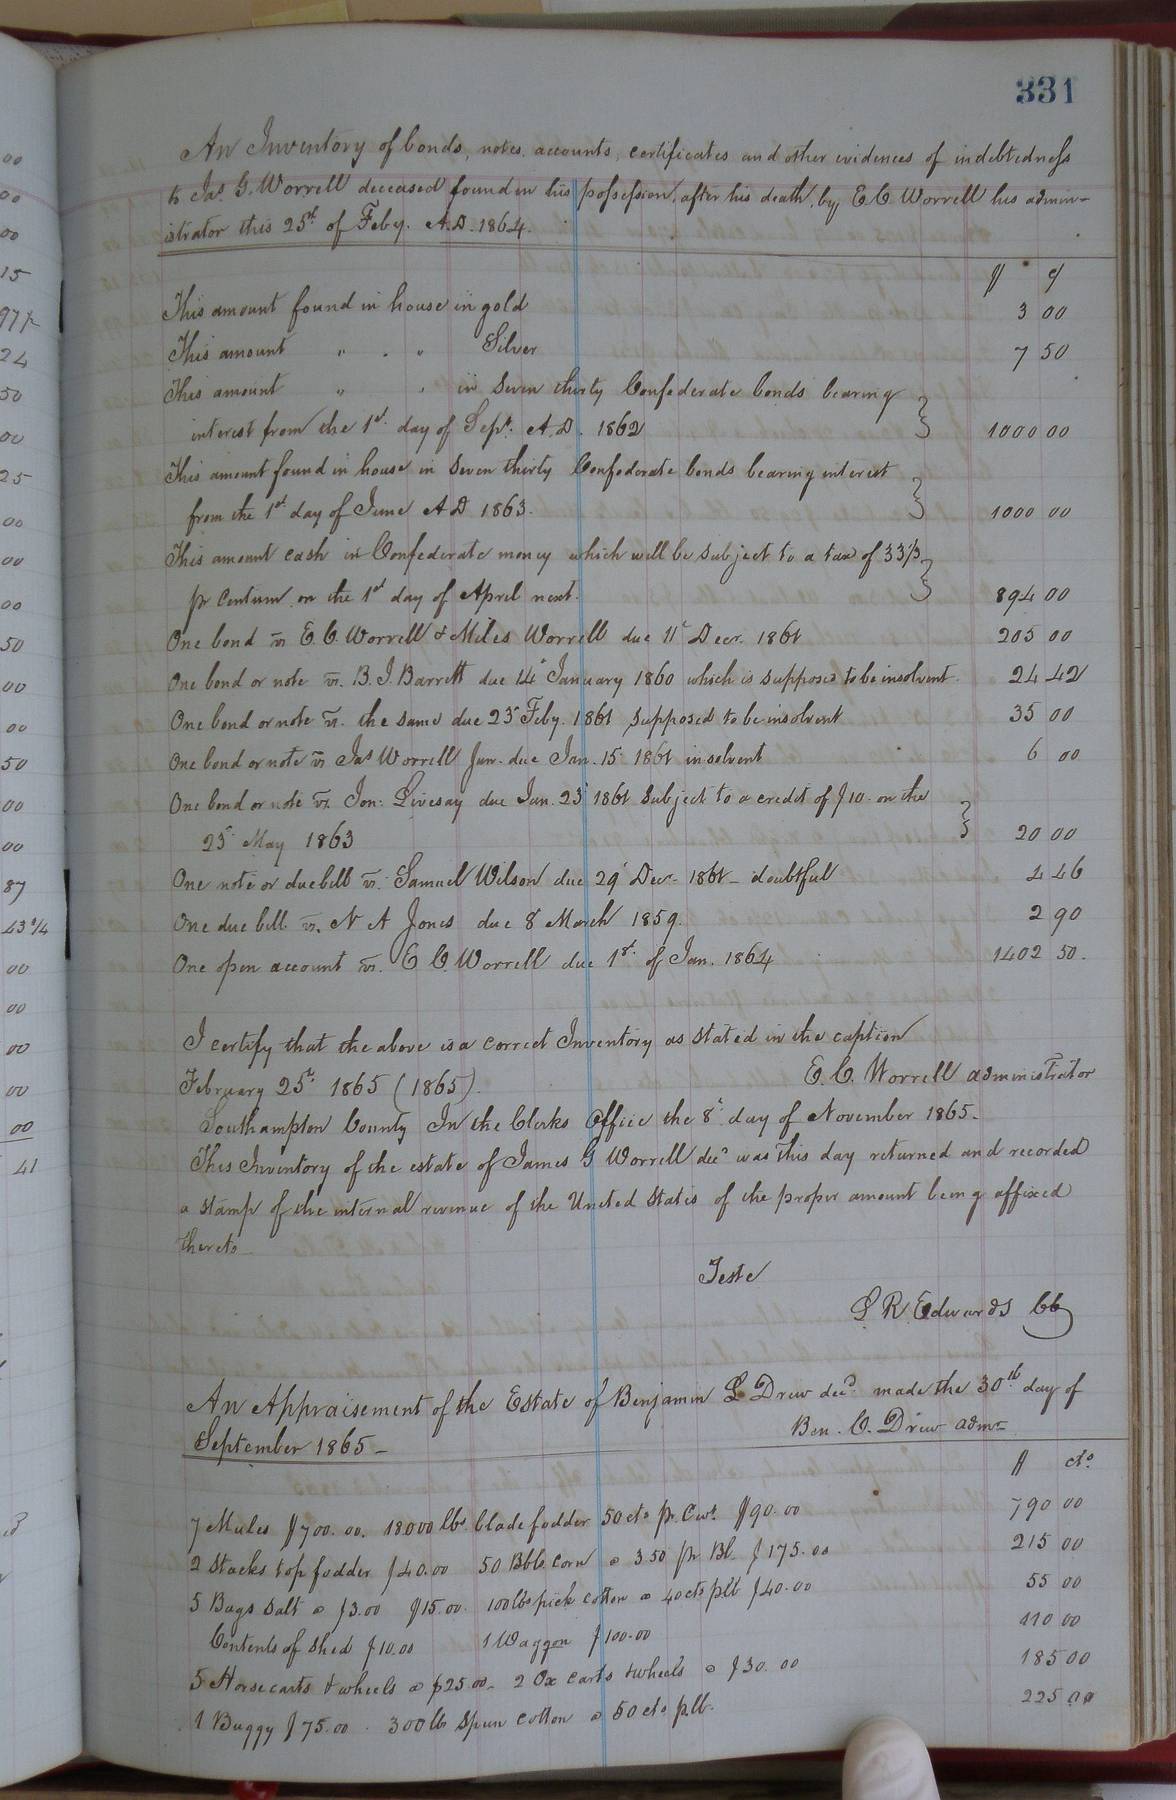 331
An Inventory of bonds, notes, accounts, certificates and other evidences of indebtedness
to Jas. G. Worrell deceased found in his possession, after his death, by E. C. Worrell his admin-
istrator this 25th of Feby. A.D. 1864.
$ c
This amount found in house in gold 3 00
This amount " . " Silver 7 50
This amount " " in seven thirty Confederate bonds bearing
interest from the 1st day of Sept. A.D. 1862 1000 00
This amount found in house in seven thirty Confederate bonds bearing interest
from the 1st day of June A D 1863. 1000 00
This amount cash in Confederate money which will be subject to a tax of 33 1/3
pr centum on the 1st day of April next. 894 00
One bond vs E. C. Worrell & Miles Worrell due 11th Decr. 1861 205 00
One bond or note vs. B. J. Barrett due 14th January 1860 which is supposed to be insolvent. 24 42
One bond or note vs. the same due 25th Feby. 1861 supposed to be insolvent 35 00
One bond or note vs Jas Worrell Jun. due Jan. 15 1861 insolvent 6 00
One bond or note vs. Jon: Livesay due Jan. 23 1861 subject to a credit of $10. on the
25th May 1863 20 00
One note or due bill vs. Samuel Wilson due 29th Decr. 1861 - doubtful 4 46
One due bill vs. N A Jones due 8th March 1859. 2 90
One open account vs. E C. Worrell due 1st. of Jan. 1864 1402 50.
I certify that the above is a correct Inventory as stated in the caption
February 25th. 1865 (1865). E. C. Worrell administrator
Southampton County In the Clerks Office the 8th day of November 1865.
This Inventory of the estate of James G Worrell decd was this day returned and recorded
a stamp of the internal revenue of the United States of the proper amount being affixed
thereto
Teste
L R Edwards CC
An Appraisement of the Estate of Benjamin L Drew decd. made the 30th day of
September 1865 - Ben. C. Drew admr
$ cts
7 Mules $700.00. 18000 lbs blade fodder 50 cts pr. Cwt. $90.00 790 00
2 Stacks top fodder $40.00 50 Bbls corn @ 3.50 pr Bl. $175.00 215 00
5 Bags Salt @ $3.00 $15.00. 100 lbs pick cotton @ 40 cts p lb $40.00 55 00
Contents of Shed $10.00 1 Waggon $100.00 110 00
5 Horse carts & wheels @ $25.00. 2 Ox carts & wheels @ $30.00 185 00
1 Buggy $75.00. 300 lb Spun cotton @ 50 cts p lb. 225 00
00
00
00
15
24
50
00
25
00
00
00
50
00
00
50
00
00
87
43 3/4
00
00
00
00
00
41